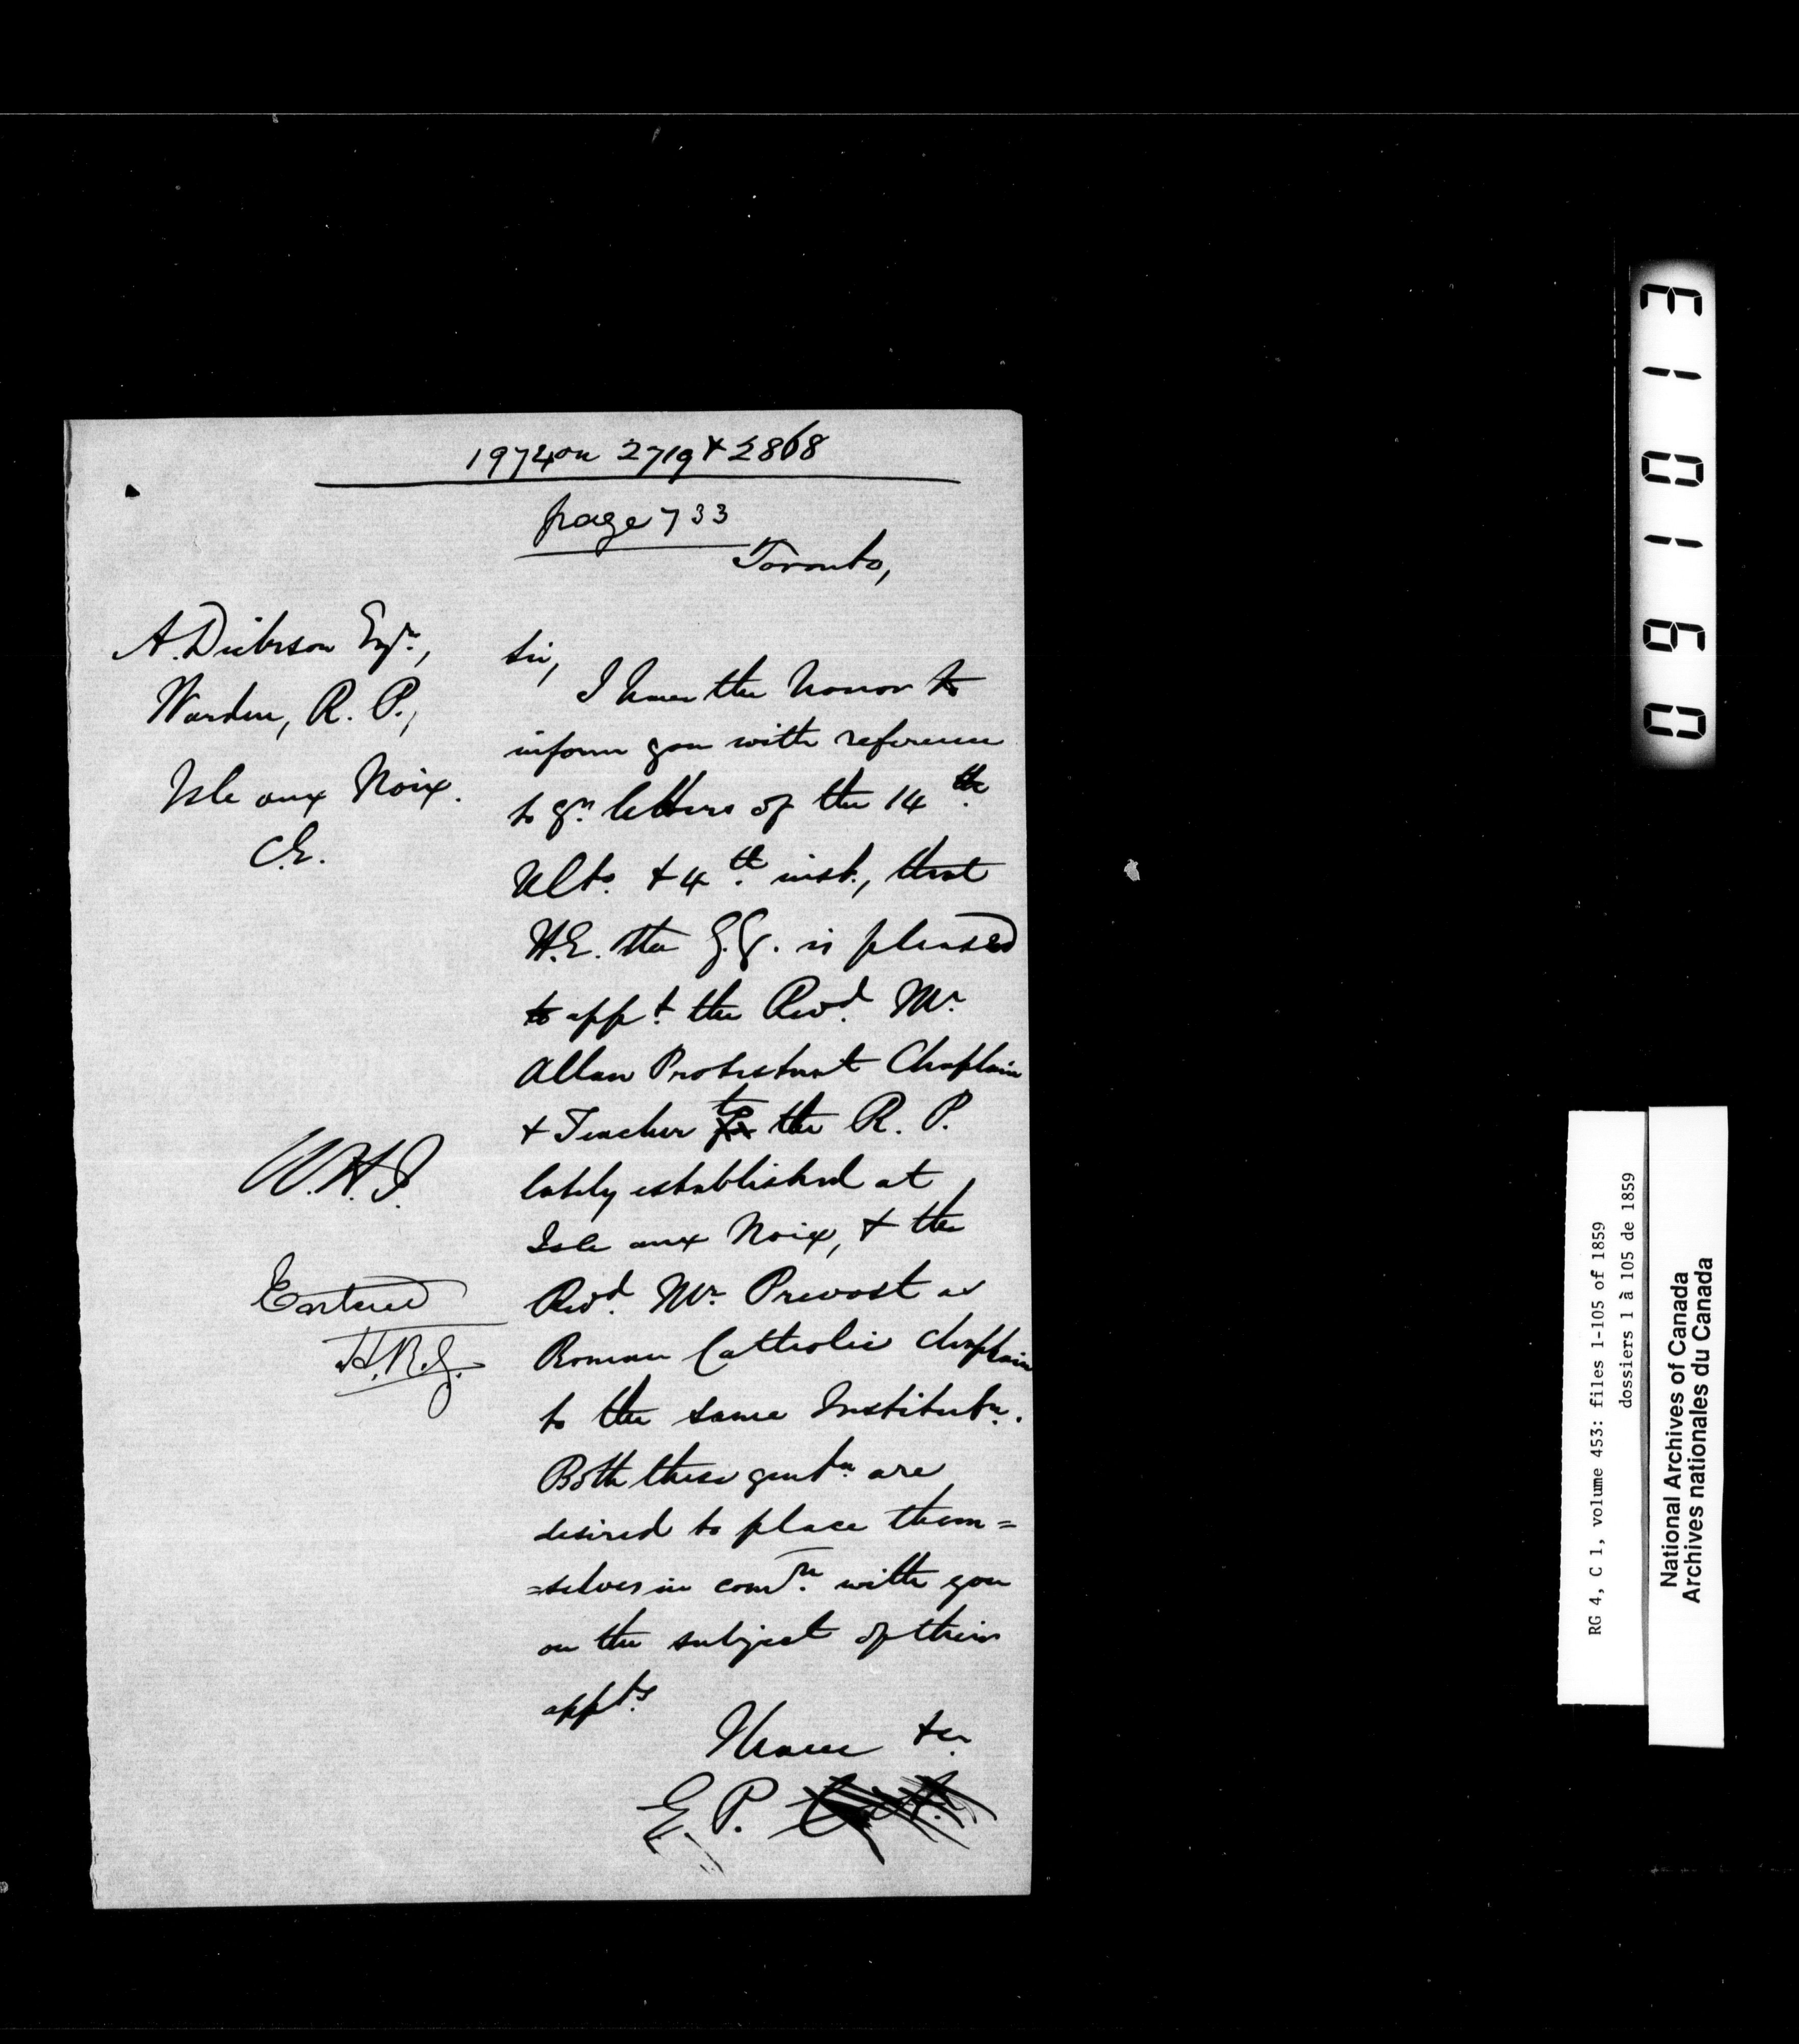 1974 on 2719 & 2868
page 733
Toronto,
A. Dickson Esqre.,
Warden, R. P.,
Isle aux Noix.
C.E.
Sir,
I have the honor to
inform you with reference
to yr. letters of the 14th.
Ulto. & 4th. inst., that
H.E. the G.G. is pleased
to appt. the Revd. Mr.
Allan Protestant Chaplain
& Teacher to the R. P.
lately established at
Isle aux Noix, & the
Revd. Mr. Prevost as
Roman Catholic Chaplain
to the same Institutn.
Both these gentn. are
desired to place them=
=selves in comn. with you
on the subject of their
appts.
I have &c.
E. P.
W.H.J.
Entered
H.R.J.
0 6 1 0 1 3
RG 4, C 1, volume 453: files 1-105 of 1859
dossiers 1 à 105 de 1859
National Archives of Canada
Archives nationales du Canada